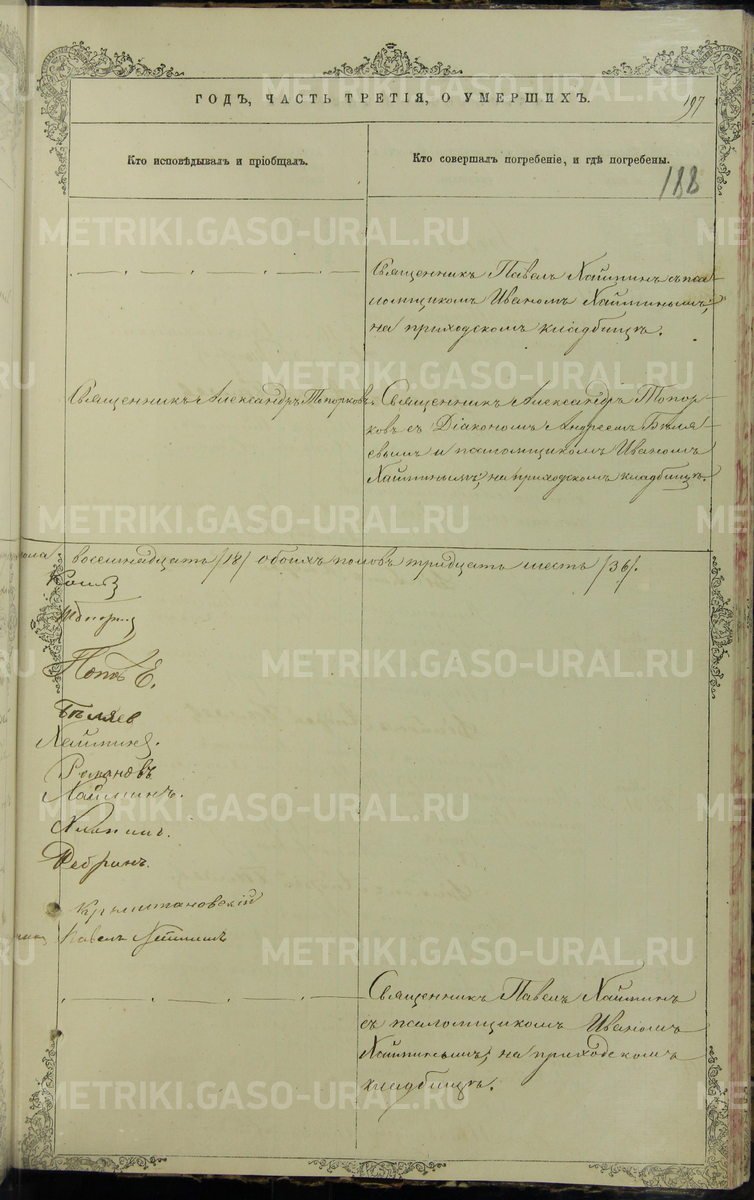 ГОДЪ, ЧАСТЬ ТРЕТІЯ, О УМЕРШИХЪ.
197
Кто исповѣдывалъ и пріобщалъ.
Кто совершалъ погребеніе, и гдѣ погребены.
188
METRIKI.GASO-URAL.RU
Священникъ Павелъ Хаймин съ пса-
ломщикомъ Иваномъ Хайминымъ,
на приходскомъ кладбищѣ.
Священникъ Александръ Топорковъ.
Священникъ Александръ Топор-
ковъ съ Діакономъ Андреемъ Бѣля-
евымъ и псаломщикомъ Иваномъ
Хайминымъ, на приходскомъ кладбищѣ.
восемнадцать /18/ обоихъ половъ тридцать шесть /36/.
Попов Е.
Бѣляев
Романовъ
Хайминъ.
Ребринъ.
Крыштановскій
Павелъ
Священникъ Павелъ Хаймин
съ псаломщикомъ Иваномъ
Хайминымъ, на приходскомъ
кладбищѣ.